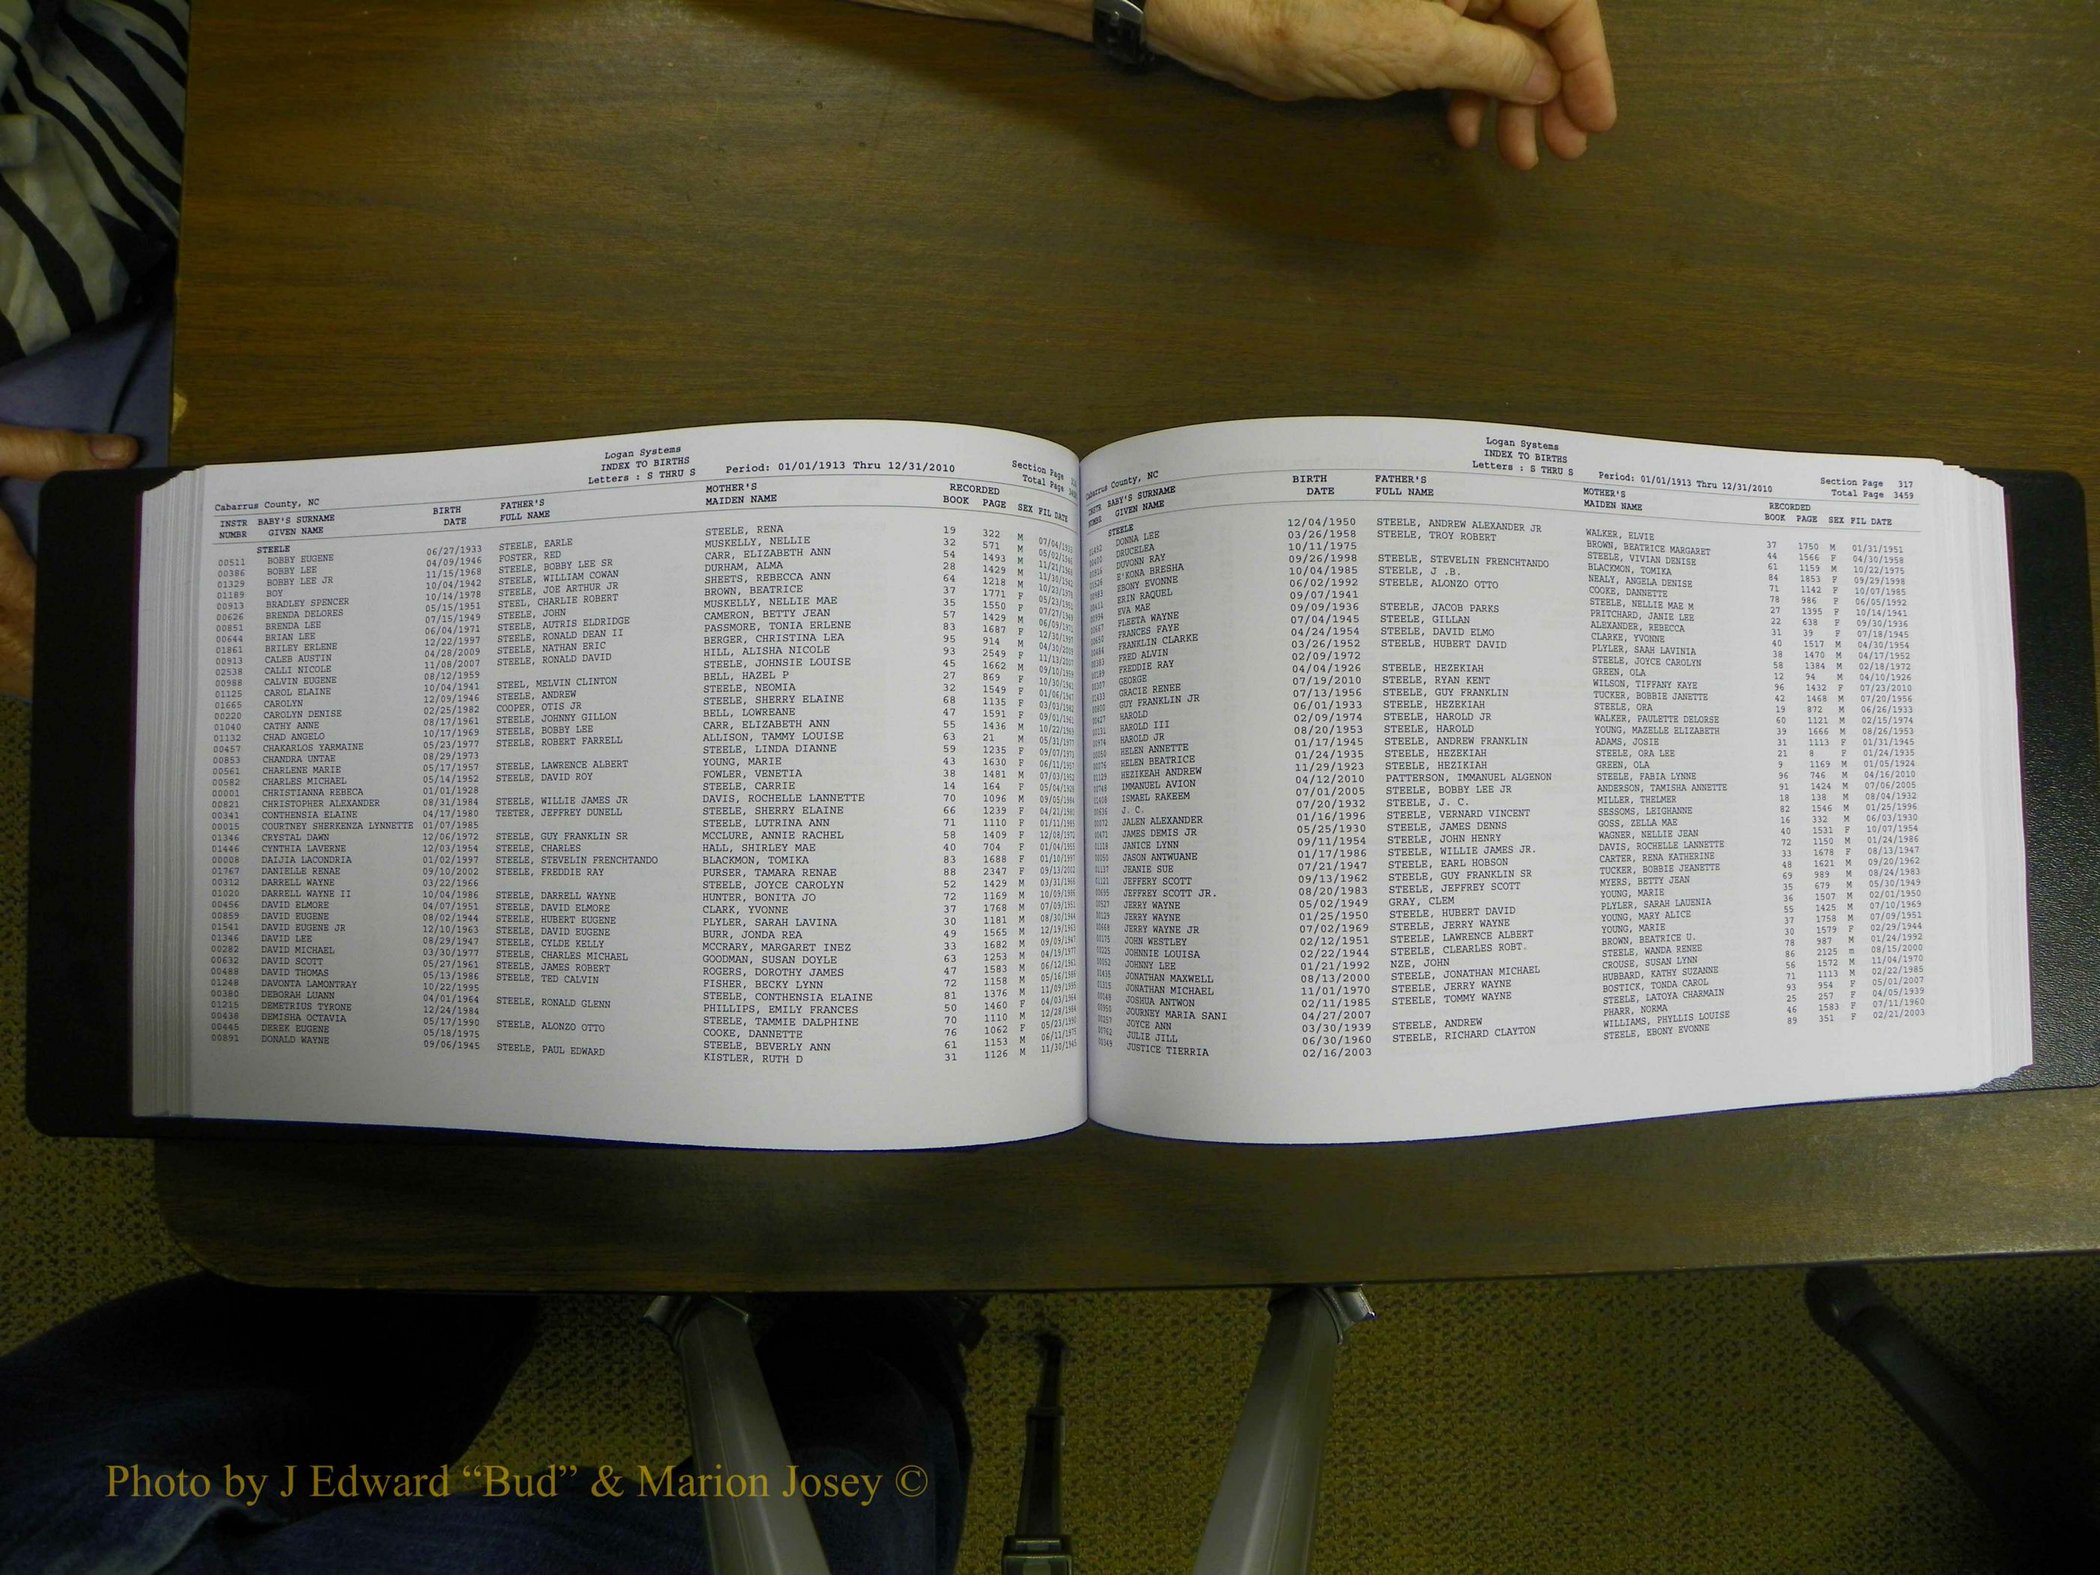 Logan Systems
INDEX TO BIRTHS
Letters : S THRU S Period: 01/01/1913 Thru 12/31/2010 Section Page
Cabarrus County, NC Total Page
INSTR NUMBR BABY'S SURNAME GIVEN NAME BIRTH DATE FATHER'S FULL NAME MOTHER'S MAIDEN NAME RECORDED BOOK PAGE SEX FIL DATE
STEELE
00511 BOBBY EUGENE 06/27/1933 STEELE, EARLE STEELE, RENA 19 322 M 07/04/1933
00386 BOBBY LEE 04/09/1946 FOSTER, RED MUSKELLY, NELLIE 32 571 M 05/02/1946
01329 BOBBY LEE JR 11/15/1968 STEELE, BOBBY LEE SR CARR, ELIZABETH ANN 54 1493 M 11/21/1968
01189 BOY 10/04/1942 STEELE, WILLIAM COWAN DURHAM, ALMA 28 1429 M 11/30/1942
00913 BRADLEY SPENCER 10/14/1978 STEELE, JOE ARTHUR JR SHEETS, REBECCA ANN 64 1218 M 10/23/1978
00626 BRENDA DELORES 05/15/1951 STEEL, CHARLIE ROBERT BROWN, BEATRICE 37 1771 F 05/23/1951
00851 BRENDA LEE 07/15/1949 STEELE, JOHN MUSKELLY, NELLIE MAE 35 1550 F 07/27/1949
00644 BRIAN LEE 06/04/1971 STEELE, AUTRIS ELDRIDGE CAMERON, BETTY JEAN 57 1429 M 06/09/1971
01861 BRILEY ERLENE 12/22/1997 STEELE, RONALD DEAN II PASSMORE, TONIA ERLENE 83 1687 F 12/30/1997
00913 CALEB AUSTIN 04/28/2009 STEELE, NATHAN ERIC BERGER, CHRISTINA LEA 95 914 M 04/30/2009
02538 CALLI NICOLE 11/08/2007 STEELE, RONALD DAVID HILL, ALISHA NICOLE 93 2549 F 11/13/2007
00988 CALVIN EUGENE 08/12/1959 STEELE, JOHNSIE LOUISE 45 1662 M 09/10/1959
01125 CAROL ELAINE 10/04/1941 STEEL, MELVIN CLINTON BELL, HAZEL P 27 869 F 10/30/1941
01665 CAROLYN 12/09/1946 STEELE, ANDREW STEELE, NEOMIA 32 1549 F 01/06/1947
00220 CAROLYN DENISE 02/25/1982 COOPER, OTIS JR STEELE, SHERRY ELAINE 68 1135 F 03/03/1982
01040 CATHY ANNE 08/17/1961 STEELE, JOHNNY GILLON BELL, LOWREANE 47 1591 F 09/01/1961
01132 CHAD ANGELO 10/17/1969 STEELE, BOBBY LEE CARR, ELIZABETH ANN 55 1436 M 10/22/1969
00457 CHAKARLOS YARMAINE 05/23/1977 STEELE, ROBERT FARRELL ALLISON, TAMMY LOUISE 63 21 M 05/31/1977
00853 CHANDRA UNTAE 08/29/1973 STEELE, LINDA DIANNE 59 1235 F 09/07/1973
00561 CHARLENE MARIE 05/17/1957 STEELE, LAWRENCE ALBERT YOUNG, MARIE 43 1630 F 06/11/1957
00582 CHARLES MICHAEL 05/14/1952 STEELE, DAVID ROY FOWLER, VENETIA 38 1481 M 07/03/1952
00001 CHRISTIANNA REBECA 01/01/1928 STEELE, CARRIE 14 164 F 05/04/1928
00821 CHRISTOPHER ALEXANDER 08/31/1984 STEELE, WILLIE JAMES JR DAVIS, ROCHELLE LANNETTE 70 1096 M 09/05/1984
00341 CONTHENSIA ELAINE 04/17/1980 TEETER, JEFFREY DUNELL STEELE, SHERRY ELAINE 66 1239 F 04/21/1980
00015 COURTNEY SHERKENZA LYNNETTE 01/07/1985 STEELE, LUTRINA ANN 71 1110 F 01/11/1985
01346 CRYSTAL DAWN 12/06/1972 STEELE, GUY FRANKLIN SR MCCLURE, ANNIE RACHEL 58 1409 F 12/08/1972
01446 CYNTHIA LAVERNE 12/03/1954 STEELE, CHARLES HALL, SHIRLEY MAE 40 704 F 01/04/1955
00008 DAIJIA LACONDRIA 01/02/1997 STEELE, STEVELIN FRENCHTANDO BLACKMON, TOMIKA 83 1688 F 01/10/1997
01767 DANIELLE RENAE 09/10/2002 STEELE, FREDDIE RAY PURSER, TAMARA RENAE 88 2347 F 09/13/2002
00312 DARRELL WAYNE 03/22/1966 STEELE, JOYCE CAROLYN 52 1429 M 03/31/1966
01020 DARRELL WAYNE II 10/04/1986 STEELE, DARRELL WAYNE HUNTER, BONITA JO 72 1169 M 10/09/1986
00456 DAVID ELMORE 04/07/1951 STEELE, DAVID ELMORE CLARK, YVONNE 37 1768 M 07/09/1951
00859 DAVID EUGENE 08/02/1944 STEELE, HUBERT EUGENE PLYLER, SARAH LAVINA 30 1181 M 08/30/1944
01541 DAVID EUGENE JR 12/10/1963 STEELE, DAVID EUGENE BURR, JONDA REA 49 1565 M 12/19/1963
01346 DAVID LEE 08/29/1947 STEELE, CYLDE KELLY MCCRARY, MARGARET INEZ 33 1682 M 09/09/1947
00282 DAVID MICHAEL 03/30/1977 STEELE, CHARLES MICHAEL GOODMAN, SUSAN DOYLE 63 1253 M 04/19/1977
00632 DAVID SCOTT 05/27/1961 STEELE, JAMES ROBERT ROGERS, DOROTHY JAMES 47 1583 M 06/12/1961
00488 DAVID THOMAS 05/13/1986 STEELE, TED CALVIN FISHER, BECKY LYNN 72 1158 M 05/16/1986
01248 DAVONTA LAMONTRAY 10/22/1995 STEELE, CONTHENSIA ELAINE 81 1376 M 11/09/1995
00380 DEBORAH LUANN 04/01/1964 STEELE, RONALD GLENN PHILLIPS, EMILY FRANCES 50 1460 F 04/03/1964
01215 DEMETRIUS TYRONE 12/24/1984 STEELE, TAMMIE DALPHINE 70 1110 M 12/28/1984
00438 DEMISHA OCTAVIA 05/17/1990 STEELE, ALONZO OTTO COOKE, DANNETTE 76 1062 F 05/23/1990
00445 DEREK EUGENE 05/18/1975 STEELE, BEVERLY ANN 61 1153 M 06/11/1975
00891 DONALD WAYNE 09/06/1945 STEELE, PAUL EDWARD KISTLER, RUTH D 31 1126 M 11/30/1945
Logan Systems
INDEX TO BIRTHS
Letters : S THRU S Period: 01/01/1913 Thru 12/31/2010 Section Page 317
Cabarrus County, NC Total Page 3459
INSTR NUMBR BABY'S SURNAME GIVEN NAME BIRTH DATE FATHER'S FULL NAME MOTHER'S MAIDEN NAME RECORDED BOOK PAGE SEX FIL DATE
STEELE
DONNA LEE 12/04/1950 STEELE, ANDREW ALEXANDER JR WALKER, ELVIE 37 1750 M 01/31/1951
DRUCELEA 03/26/1958 STEELE, TROY ROBERT BROWN, BEATRICE MARGARET 44 1566 F 04/30/1958
DUVONN RAY 10/11/1975 STEELE, VIVIAN DENISE 61 1159 M 10/22/1975
E'KONA BRESHA 09/26/1998 STEELE, STEVELIN FRENCHTANDO BLACKMON, TOMIKA 84 1853 F 09/29/1998
EBONY EVONNE 10/04/1985 STEELE, J .B. NEALY, ANGELA DENISE 71 1142 F 10/07/1985
ERIN RAQUEL 06/02/1992 STEELE, ALONZO OTTO COOKE, DANNETTE 78 986 F 06/05/1992
EVA MAE 09/07/1941 STEELE, NELLIE MAE M 27 1395 F 10/14/1941
FLEETA WAYNE 09/09/1936 STEELE, JACOB PARKS PRITCHARD, JANIE LEE 22 638 F 09/30/1936
FRANCES FAYE 07/04/1945 STEELE, GILLAN ALEXANDER, REBECCA 31 39 F 07/18/1945
FRANKLIN CLARKE 04/24/1954 STEELE, DAVID ELMO CLARKE, YVONNE 40 1517 M 04/30/1954
FRED ALVIN 03/26/1952 STEELE, HUBERT DAVID PLYLER, SAAH LAVINIA 38 1470 M 04/17/1952
FREDDIE RAY 02/09/1972 STEELE, JOYCE CAROLYN 58 1384 M 02/18/1972
GEORGE 04/04/1926 STEELE, HEZEKIAH GREEN, OLA 12 94 M 04/10/1926
GRACIE RENEE 07/19/2010 STEELE, RYAN KENT WILSON, TIFFANY KAYE 96 1432 F 07/23/2010
GUY FRANKLIN JR 07/13/1956 STEELE, GUY FRANKLIN TUCKER, BOBBIE JANETTE 42 1468 M 07/20/1956
HAROLD 06/01/1933 STEELE, HEZEKIAH STEELE, ORA 19 872 M 06/26/1933
HAROLD III 02/09/1974 STEELE, HAROLD JR WALKER, PAULETTE DELORSE 60 1121 M 02/15/1974
HAROLD JR 08/20/1953 STEELE, HAROLD YOUNG, MAZELLE ELIZABETH 39 1666 M 08/26/1953
HELEN ANNETTE 01/17/1945 STEELE, ANDREW FRANKLIN ADAMS, JOSIE 31 1113 F 01/31/1945
HELEN BEATRICE 01/24/1935 STEELE, HEZEKIAH STEELE, ORA LEE 21 8 F 01/24/1935
HEZIKEAH ANDREW 11/29/1923 STEELE, HEZEKIAH GREEN, OLA 9 1169 M 01/05/1924
IMMANUEL AVION 04/12/2010 PATTERSON, IMMANUEL ALGENON STEELE, FABIA LYNNE 96 746 M 04/16/2010
ISMAEL RAKEEM 07/01/2005 STEELE, BOBBY LEE JR ANDERSON, TAMISHA ANNETTE 91 1424 M 07/06/2005
J. C. 07/20/1932 STEELE, J. C. MILLER, THELMER 18 138 M 08/04/1932
JALEN ALEXANDER 01/16/1996 STEELE, VERNARD VINCENT SESSOMS, LEIGHANNE 82 1546 M 01/25/1996
JAMES DEMIS JR 05/25/1930 STEELE, JAMES DENNS GOSS, ZELLA MAE 16 332 M 06/03/1930
JANICE LYNN 09/11/1954 STEELE, JOHN HENRY WAGNER, NELLIE JEAN 40 1531 F 10/07/1954
JASON ANTWUANE 01/17/1986 STEELE, WILLIE JAMES JR. DAVIS, ROCHELLE LANNETTE 72 1150 M 01/24/1986
JEANIE SUE 07/21/1947 STEELE, EARL HOBSON CARTER, RENA KATHERINE 33 1678 F 08/13/1947
JEFFERY SCOTT 09/13/1962 STEELE, GUY FRANKLIN SR TUCKER, BOBBIE JEANETTE 48 1621 M 09/20/1962
JEFFREY SCOTT JR. 08/20/1983 STEELE, JEFFREY SCOTT MYERS, BETTY JEAN 69 989 M 08/24/1983
JERRY WAYNE 05/02/1949 GRAY, CLEM YOUNG, MARIE 35 679 M 05/30/1949
JERRY WAYNE 01/25/1950 STEELE, HUBERT DAVID PLYLER, SARAH LAUENIA 36 1507 M 02/01/1950
JERRY WAYNE JR 07/02/1969 STEELE, JERRY WAYNE YOUNG, MARY ALICE 55 1425 M 07/10/1969
JOHN WESTLEY 02/12/1951 STEELE, LAWRENCE ALBERT YOUNG, MARIE 37 1758 M 07/09/1951
JOHNNIE LOUISA 02/22/1944 STEELE, CLEARLES ROBT. BROWN, BEATRICE U. 30 1579 F 02/29/1944
JOHNNY LEE 01/21/1992 NZE, JOHN STEELE, WANDA RENEE 78 987 M 01/24/1992
JONATHAN MAXWELL 08/13/2000 STEELE, JONATHAN MICHAEL CROUSE, SUSAN LYNN 86 2125 m 08/15/2000
JONATHAN MICHAEL 11/01/1970 STEELE, JERRY WAYNE HUBBARD, KATHY SUZANNE 56 1572 M 11/04/1970
JOSHUA ANTWON 02/11/1985 STEELE, TOMMY WAYNE BOSTICK, TONDA CAROL 71 1113 M 02/22/1985
JOURNEY MARIA SANI 04/27/2007 STEELE, LATOYA CHARMAIN 93 954 F 05/01/2007
JOYCE ANN 03/30/1939 STEELE, ANDREW PHARR, NORMA 25 257 F 04/05/1939
JULIE JILL 06/30/1960 STEELE, RICHARD CLAYTON WILLIAMS, PHYLLIS LOUISE 46 1583 F 07/11/1960
JUSTICE TIERRIA 02/16/2003 STEELE, EBONY EVONNE 89 351 F 02/21/2003
Photo by J Edward “Bud” & Marion Josey ©